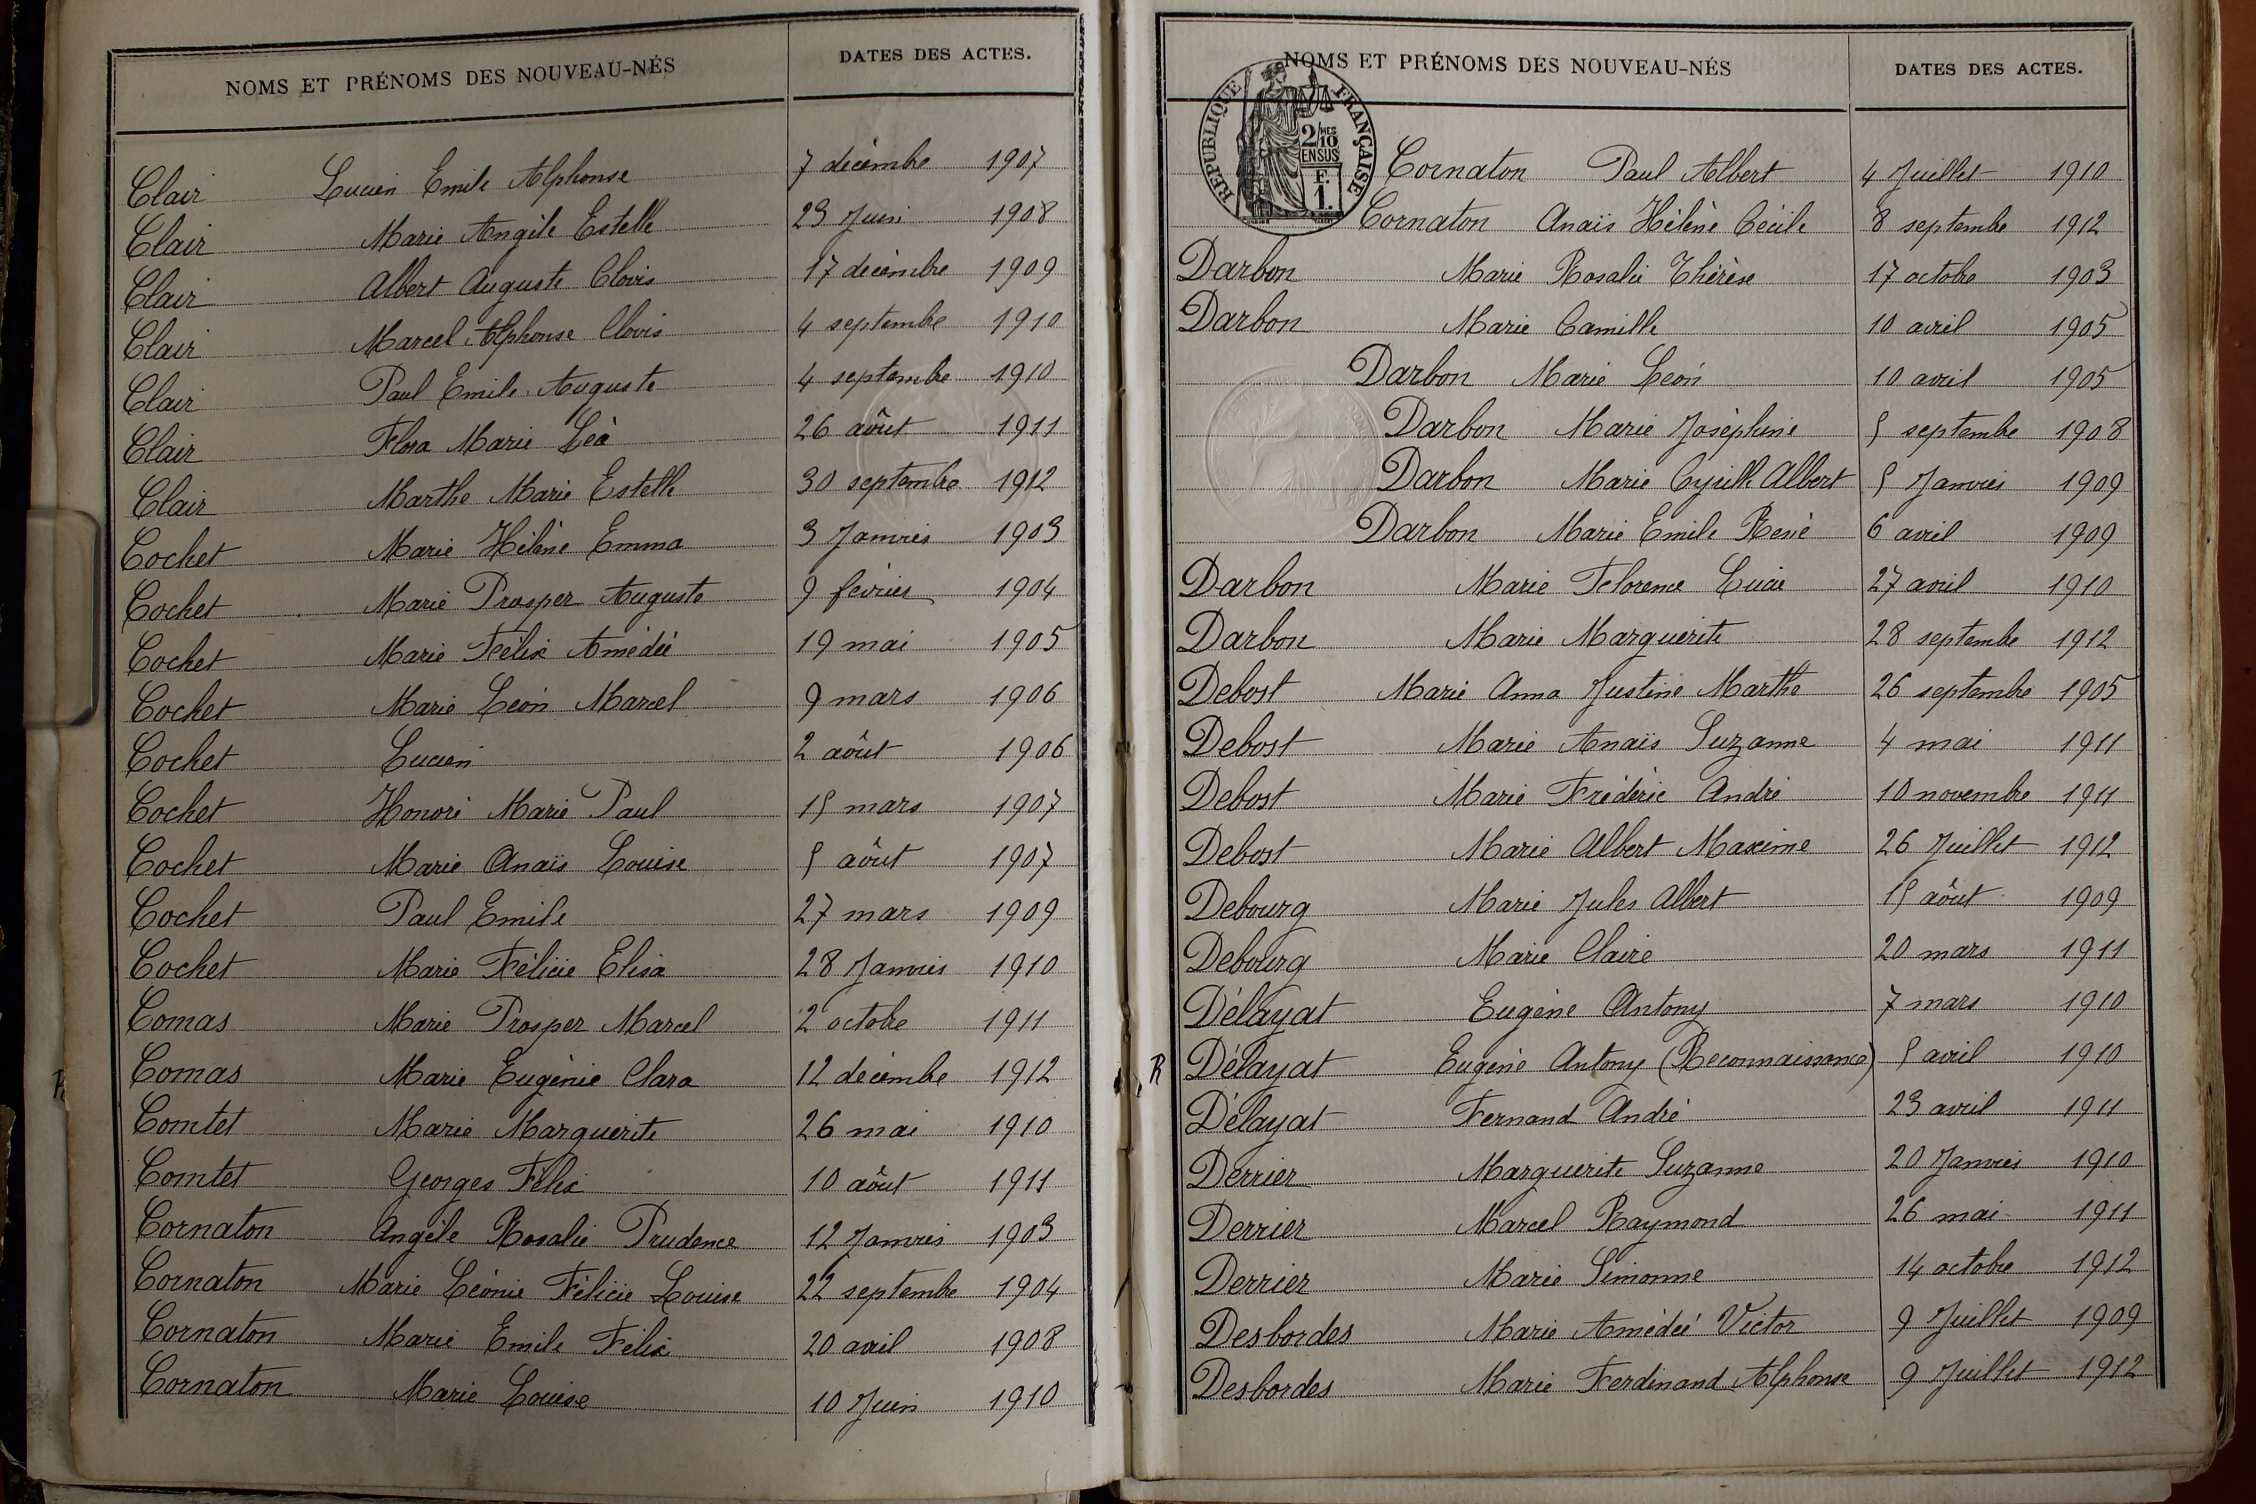 NOMS ET PRÉNOMS DES NOUVEAU-NÉS DATES DES ACTES.
Clair Lucien Emile Alphonse 7 décembre 1907
Clair Marie Angèle Estelle 23 Juin 1908
Clair Albert Auguste Clovis 17 décembre 1909
Clair Marcel Alphonse Clovis 4 septembre 1910
Clair Paul Emile Auguste 4 septembre 1910
Clair Flora Marie Léa 26 août 1911
Clair Marthe Marie Estelle 30 septembre 1912
Cochet Marie Hélène Emma 3 Janvier 1903
Cochet Marie Prosper Auguste 9 février 1904
Cochet Marie Félix Amédée 19 mai 1905
Cochet Marie Léon Marcel 9 mars 1906
Cochet Lucien 2 août 1906
Cochet Honoré Marie Paul 15 mars 1907
Cochet Marie Anaïs Louise 5 août 1907
Cochet Paul Emile 27 mars 1909
Cochet Marie Félicie Elisa 28 Janvier 1910
Comas Marie Prosper Marcel 2 octobre 1911
Comas Marie Eugénie Clara 12 décembre 1912
Comtet Marie Marguerite 26 mai 1910
Comtet Georges Félix 10 août 1911
Cornaton Angèle Rosalie Prudence 12 Janvier 1903
Cornaton Marie Léonie Félicie Louise 22 septembre 1904
Cornaton Marie Emile Félix 20 avril 1908
Cornaton Marie Louise 10 Juin 1910
NOMS ET PRÉNOMS DES NOUVEAU-NÉS DATES DES ACTES.
RÉPUBLIQUE FRANÇAISE
2/10 MES
EN SUS
F.
1.
Cornaton Paul Albert 4 Juillet 1910
Cornaton Anaïs Hélène Cécile 8 septembre 1912
Darbon Marie Rosalie Thérèse 17 octobre 1903
Darbon Marie Camille 10 avril 1905
Darbon Marie Léon 10 avril 1905
Darbon Marie Joséphine 5 septembre 1908
Darbon Marie Cyrille Albert 5 Janvier 1909
Darbon Marie Emile René 6 avril 1909
Darbon Marie Florence Lucie 27 avril 1910
Darbon Marie Marguerite 28 septembre 1912
Debost Marie Anna Justine Marthe 26 septembre 1905
Debost Marie Anaïs Suzanne 4 mai 1911
Debost Marie Frédéric André 10 novembre 1911
Debost Marie Albert Maxime 26 Juillet 1912
Debourg Marie Jules Albert 15 août 1909
Debourg Marie Claire 20 mars 1911
Délayat Eugène Antony 7 mars 1910
R Délayat Eugène Antony (Reconnaissance) 5 avril 1910
Délayat Fernand André 23 avril 1911
Derrier Marguerite Suzanne 20 Janvier 1910
Derrier Marcel Raymond 26 mai 1911
Derrier Marie Simonne 14 octobre 1912
Desbordes Marie Amédée Victor 9 Juillet 1909
Desbordes Marie Ferdinand Alphonse 9 Juillet 1912